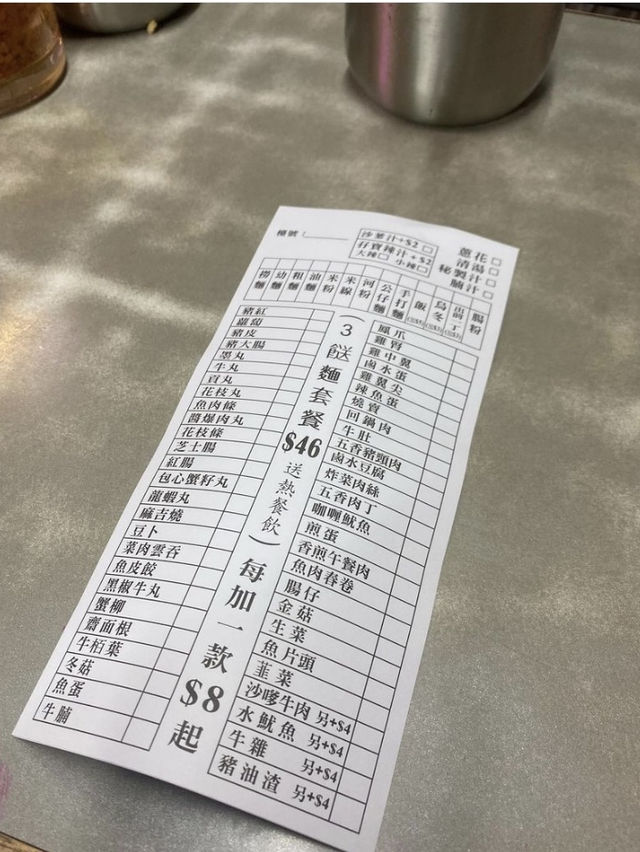 檯號：
沙薑汁+$2
孖寶辣汁+$2
大辣 小辣
蔥花
清湯
秘製汁
腩汁
撈麵
幼麵
粗麵
油麵
米粉
米線
河粉
公仔麵
手打麵
飯
烏冬
出前一丁
腸粉
豬紅
蘿蔔
豬皮
豬大腸
墨丸
牛丸
貢丸
花枝丸
魚肉條
醬爆肉丸
花枝條
芝士腸
紅腸
包心蟹籽丸
龍蝦丸
麻吉燒
豆卜
菜肉雲吞
魚皮餃
黑椒牛丸
蟹柳
齋面根
牛栢葉
冬菇
魚蛋
牛腩
（3餸麵套餐
$46
送熱餐飲）
每加一款
$8
起
鳳爪
雞腎
雞中翼
鹵水蛋
雞翼尖
辣魚蛋
燒賣
回鍋肉
牛肚
五香豬頸肉
鹵水豆腐
炸菜肉絲
五香肉丁
咖喱魷魚
煎蛋
香煎午餐肉
魚肉春卷
腸仔
金菇
生菜
魚片頭
韮菜
沙嗲牛肉 另+$4
水魷魚 另+$4
牛雜 另+$4
豬油渣 另+$4